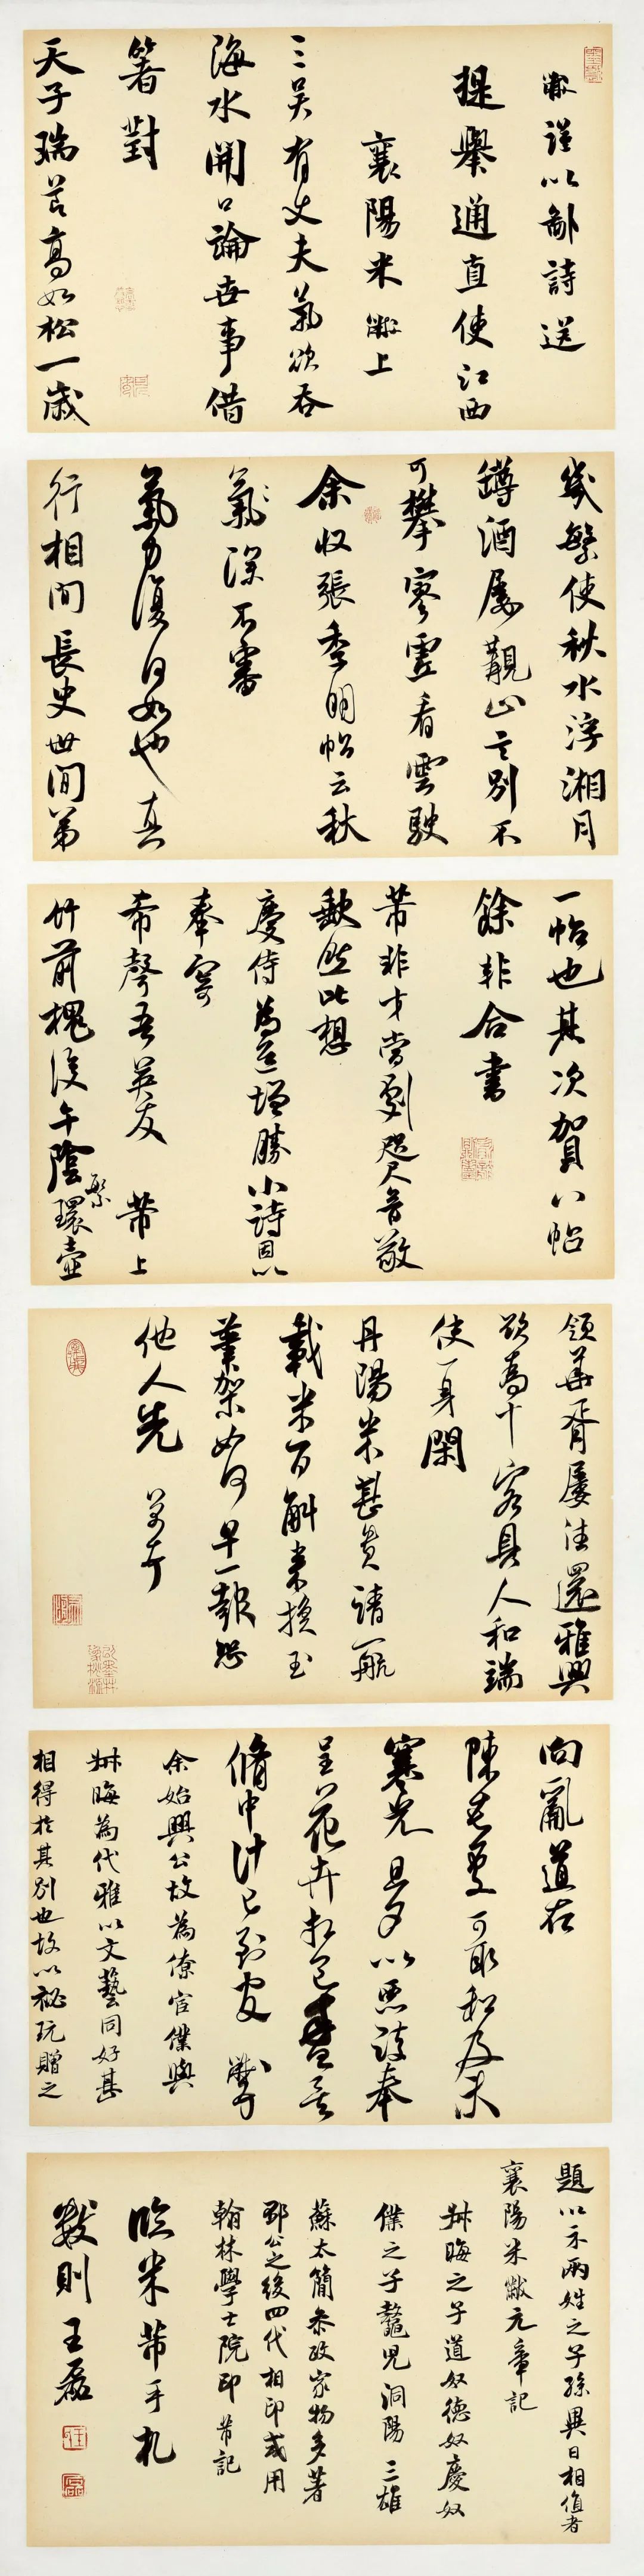 黻謹以鄙詩送
提舉通直使江西
襄陽米黻上
三吳有丈夫氣欲吞
海水開口論世事借
箸對
天子瑞節高如松一歲
幾繁使秋水浮湘月
罇酒屢觀山言別不
可攀寥寥看雲駛
余收張季明帖云秋
氣深不審
氣力復何如也真
行相間長史世間第
一帖也其次賀八帖
餘非合書
芾非才當劇咫尺音敬
歉然比想
慶侍為道增勝小詩因以
奉寄
希聲吾英友 芾上
竹前槐後午陰繁環壺
領華胥屢往還雅興
欲為十客具人和端
使一身閑
丹陽米甚貴請一航
載米百斛來換玉
筆架如何早一報恐
他人先 芾頓首
向亂道在
陳七處可取租及未
寒光旦夕以惡詩奉
呈花卉想已盡矣
脩中計已到官 黻頓首
余始興公故為僚宦僕與
叔晦為代雅以文藝同好甚
相得於其別也故以祕玩贈之
題以示兩姓之子孫異日相值者
襄陽米黻元章記
叔晦之子道奴德奴慶奴
僕之子鼇兒洞陽三雄
蘇太簡參政家物多著
邳公之後四代相印或用
翰林學士院印 芾記
臨米芾手札
數則 王磊